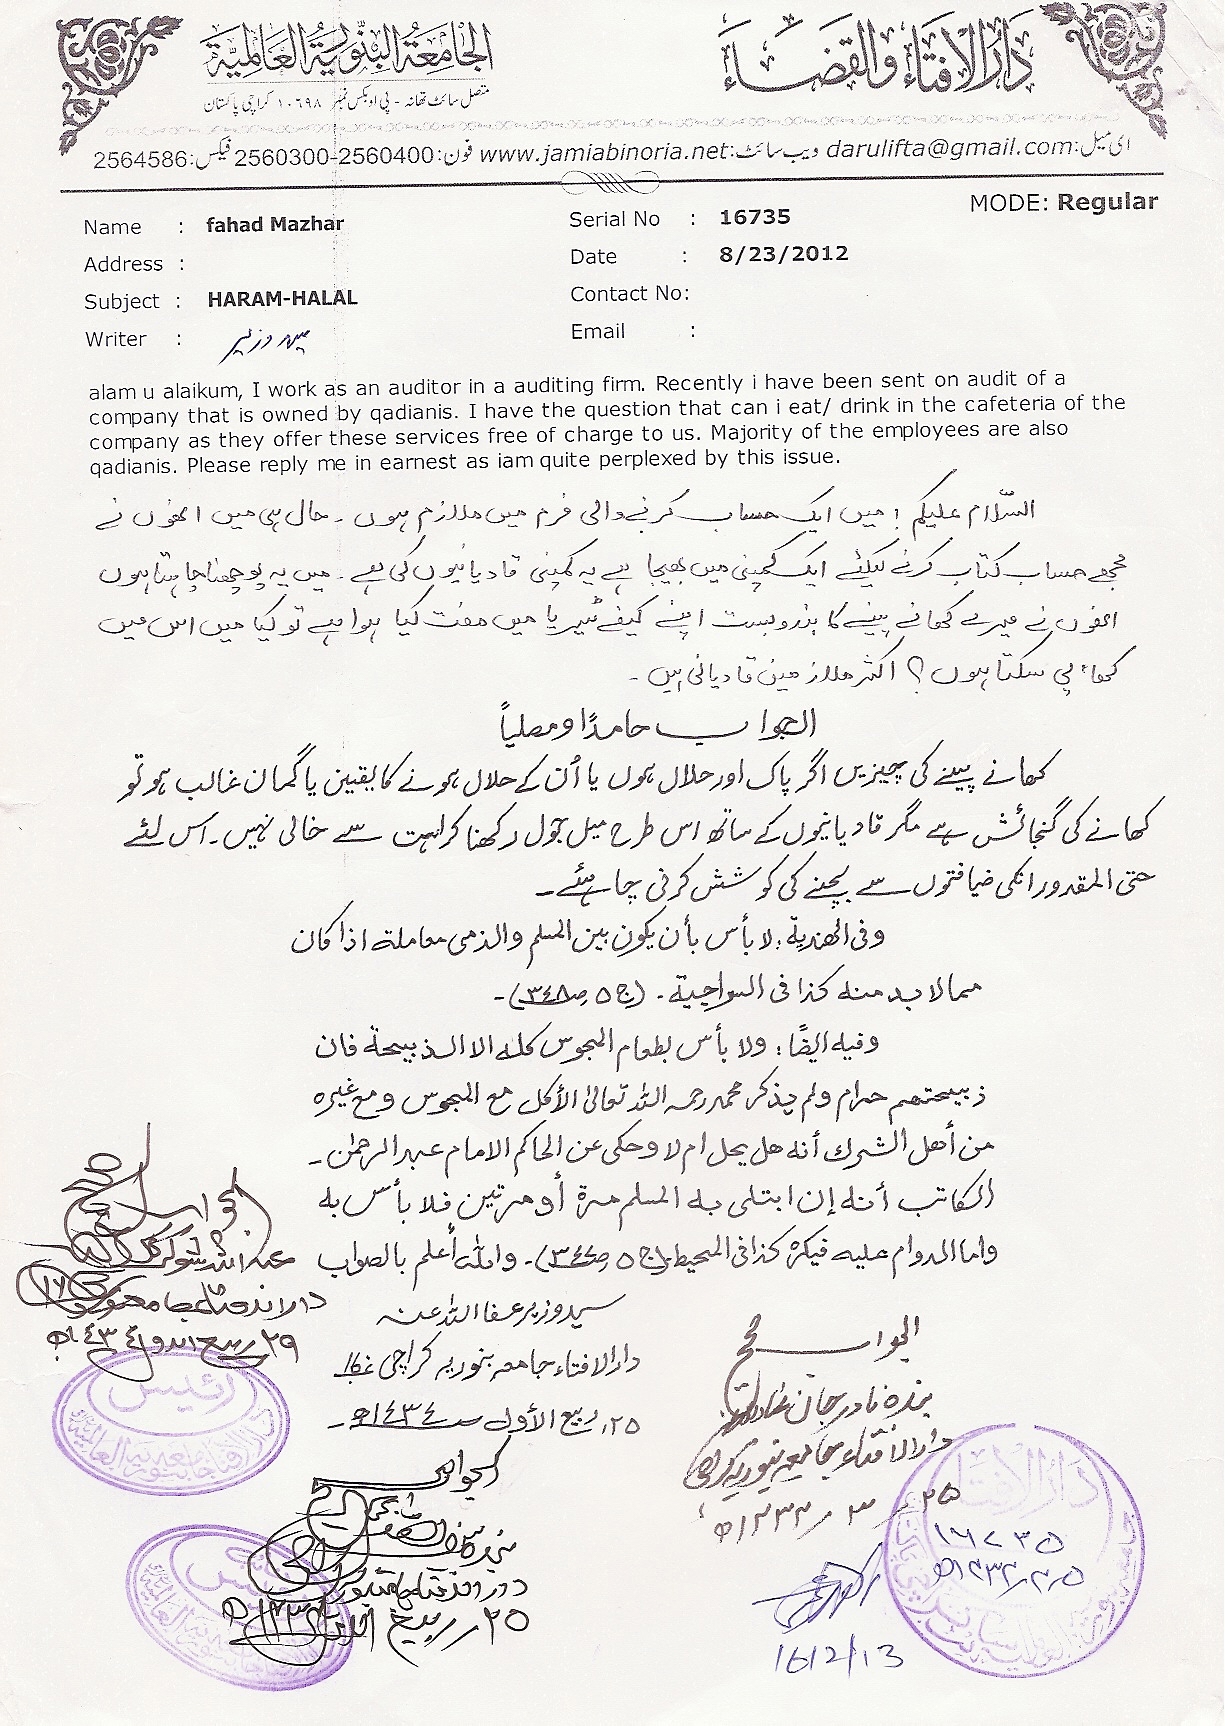 الجامعة البنّورية العالمية
دار الافتاء والقضاء
متصل سائٹ تھانہ - پی او بکس نمبر ۱۰۶۹۸ کراچی پاکستان
ای میل:darulifta@gmail.com ویب سائٹ:www.jamiabinoria.net فون:2560300-2560400 فیکس:2564586
MODE: Regular
Name : fahad Mazhar
Serial No : 16735
Address :
Date : 8/23/2012
Subject : HARAM-HALAL
Contact No:
Writer : سید وزیر
Email :
alam u alaikum, I work as an auditor in a auditing firm. Recently i have been sent on audit of a
company that is owned by qadianis. I have the question that can i eat/ drink in the cafeteria of the
company as they offer these services free of charge to us. Majority of the employees are also
qadianis. Please reply me in earnest as iam quite perplexed by this issue.
السّلام علیکم! میں ایک حساب کرنے والی فرم میں ملازم ہوں۔ حال ہی میں انھوں نے
مجھے حساب کتاب کرنے کیلئے ایک کمپنی میں بھیجا ہے یہ کمپنی قادیانیوں کی ہے۔ میں یہ پوچھنا چاہتا ہوں
انھوں نے میرے کھانے پینے کا بندوبست اپنے کیفے ٹیریا میں مفت کیا ہوا ہے تو کیا میں اس میں
کھا پی سکتا ہوں؟ اکثر ملازمین قادیانی ہیں۔
الجواب حامدًا ومصلیاً
کھانے پینے کی چیزیں اگر پاک اور حلال ہوں یا اُن کے حلال ہونے کا یقین یا گمان غالب ہو تو
کھانے کی گنجائش ہے مگر قادیانیوں کے ساتھ اس طرح میل جول رکھنا کراہت سے خالی نہیں۔ اس لئے
حتی المقدور انکی ضیافتوں سے بچنے کی کوشش کرنی چاہئے۔
وفی الهندیة: لا بأس بأن یکون بین المسلم والذمی معاملة اذا کان
مما لا بد منه کذا فی السراجیة۔ (ج ۵ ص ۳۴۸)۔
وفیه ایضًا: ولا بأس بطعام المجوس کله الا الذبیحة فان
ذبیحتهم حرام ولم یذکر محمد رحمه اللہ تعالیٰ الأکل مع المجوس ومع غیره
من أهل الشرك أنه هل یحل ام لا وحکی عن الحاکم الامام عبد الرحمٰن۔
الکاتب أنه إن ابتلی به المسلم مرة أو مرتین فلا بأس به
واما الدوام علیه فیکره کذا فی المحیط (ج ۵ ص ۳۴۷)۔ واللہ أعلم بالصواب
سید وزیر عفا اللہ عنہ
دار الافتاء جامعہ بنوریہ کراچی
۲۵، ربیع الأول ۱۴۳۴ھ
الجواب صحیح
بندہ نادر جان
دار الافتاء جامعہ بنوریہ کراچی
۲۵ / ۳ / ۱۴۳۴ھ
الجواب صحیح
دار الافتاء جامعہ بنوریہ
۲۹ ربیع الاول ۱۴۳۴ھ
رئیس
الجواب
بندہ
۲۵ ربیع
دار الافتاء
۱۶۷۳۵
16/2/13